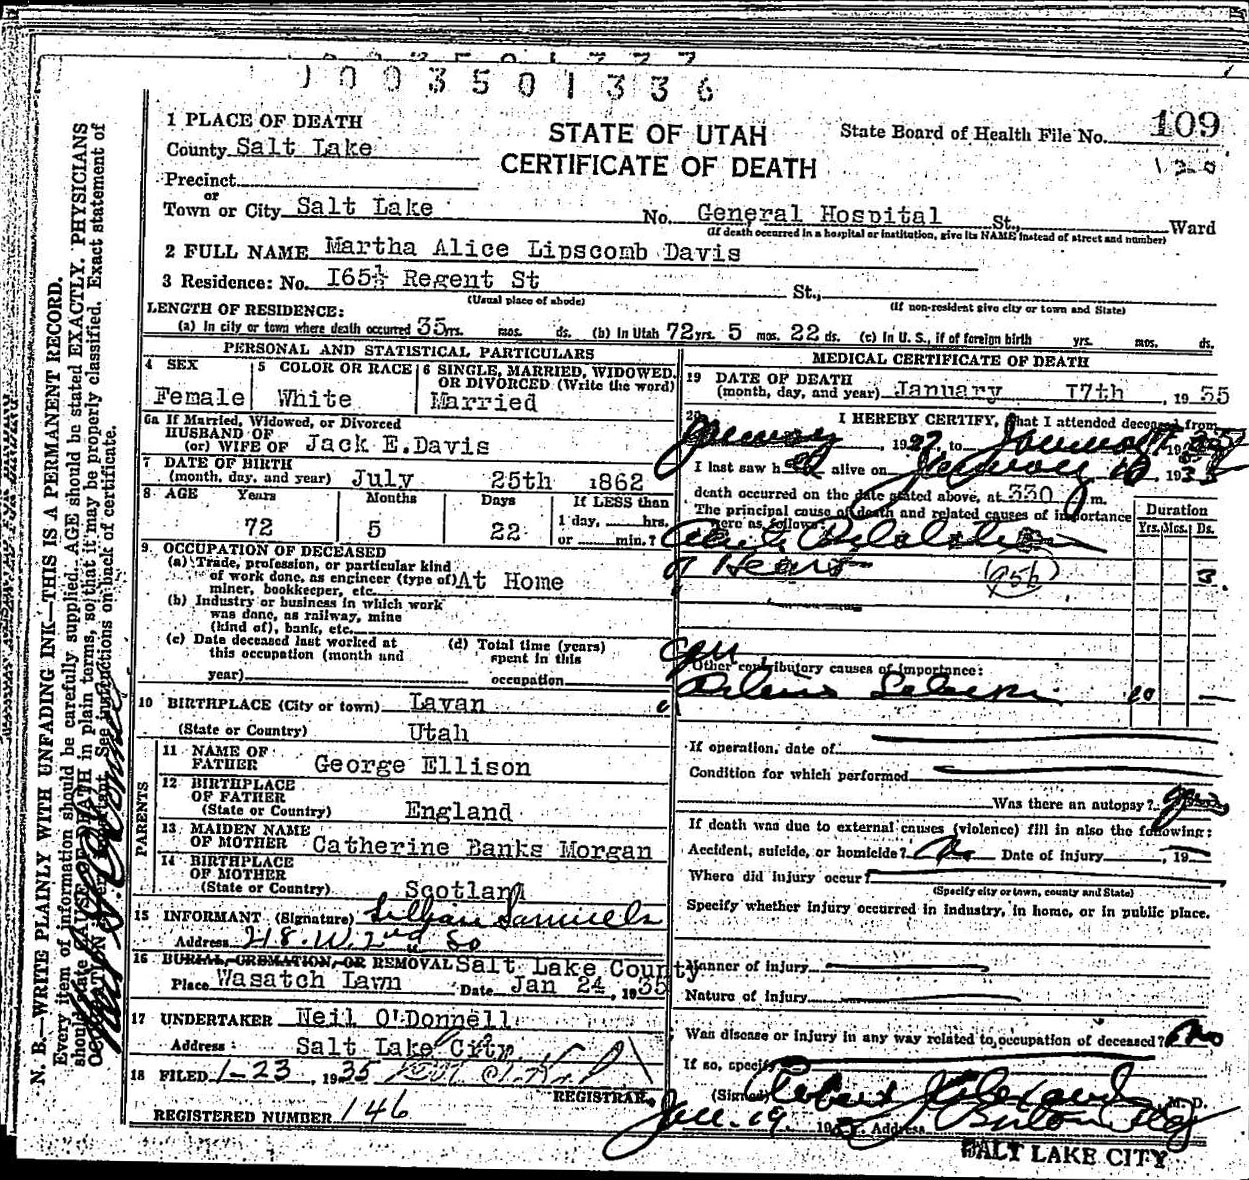 1003501336
1 PLACE OF DEATH
County Salt Lake
STATE OF UTAH
CERTIFICATE OF DEATH
State Board of Health File No. 109
Precinct
or
Town or City Salt Lake No. General Hospital St., Ward
(If death occurred in a hospital or institution, give its NAME instead of street and number)
2 FULL NAME Martha Alice Lipscomb Davis
3 Residence: No. I65½ Regent St St.,
(Usual place of abode) (If non-resident give city or town and State)
LENGTH OF RESIDENCE:
(a) In city or town where death occurred 35 yrs. mos. ds. (b) In Utah 72 yrs. 5 mos. 22 ds. (c) In U. S., if of foreign birth yrs. mos. ds.
PERSONAL AND STATISTICAL PARTICULARS
4 SEX Female
5 COLOR OR RACE White
6 SINGLE, MARRIED, WIDOWED, OR DIVORCED (Write the word) Married
6a If Married, Widowed, or Divorced
HUSBAND OF
(or) WIFE OF Jack E.Davis
7 DATE OF BIRTH
(month, day, and year) July 25th 1862
8 AGE Years Months Days If LESS than
72 5 22 1 day, hrs.
or min.?
9 OCCUPATION OF DECEASED
(a) Trade, profession, or particular kind
of work done, as engineer (type of) At Home
miner, bookkeeper, etc.
(b) Industry or business in which work
was done, as railway, mine
(kind of), bank, etc.
(c) Date deceased last worked at
this occupation (month and
year)
(d) Total time (years)
spent in this
occupation
10 BIRTHPLACE (City or town) Lavan
(State or Country) Utah
PARENTS
11 NAME OF
FATHER George Ellison
12 BIRTHPLACE
OF FATHER
(State or Country) England
13 MAIDEN NAME
OF MOTHER Catherine Banks Morgan
14 BIRTHPLACE
OF MOTHER
(State or Country) Scotland
15 INFORMANT (Signature) Lillian Samuels
Address 218. W. 2nd So
16 BURIAL, CREMATION, OR REMOVAL Salt Lake County
Place Wasatch Lawn Date Jan 24, 1935
17 UNDERTAKER Neil O'Donnell
Address Salt Lake City
18 FILED 1-23, 1935
REGISTRAR.
REGISTERED NUMBER 146
MEDICAL CERTIFICATE OF DEATH
19 DATE OF DEATH
(month, day, and year) January 17th, 1935
20 I HEREBY CERTIFY, that I attended deceased from
January, 19 to January 19
I last saw h alive on January 16 1935
death occurred on the date stated above, at 330 m.
The principal cause of death and related causes of importance
were as follows: Duration
Yrs. Mos. Ds.
of Heart
95b
Other contributory causes of importance:
10
If operation, date of
Condition for which performed
Was there an autopsy?
If death was due to external causes (violence) fill in also the following:
Accident, suicide, or homicide? No Date of injury, 19
Where did injury occur?
(Specify city or town, county and State)
Specify whether injury occurred in industry, in home, or in public place.
Manner of injury
Nature of injury
Was disease or injury in any way related to occupation of deceased? No
If so, specify
(Signed) Robert M. D.
Jan. 19. 19 Address
SALT LAKE CITY
N. B.—WRITE PLAINLY WITH UNFADING INK—THIS IS A PERMANENT RECORD.
Every item of information should be carefully supplied. AGE should be stated EXACTLY. PHYSICIANS
should state CAUSE OF DEATH in plain terms, so that it may be properly classified. Exact statement of
OCCUPATION is very important. See instructions on back of certificate.